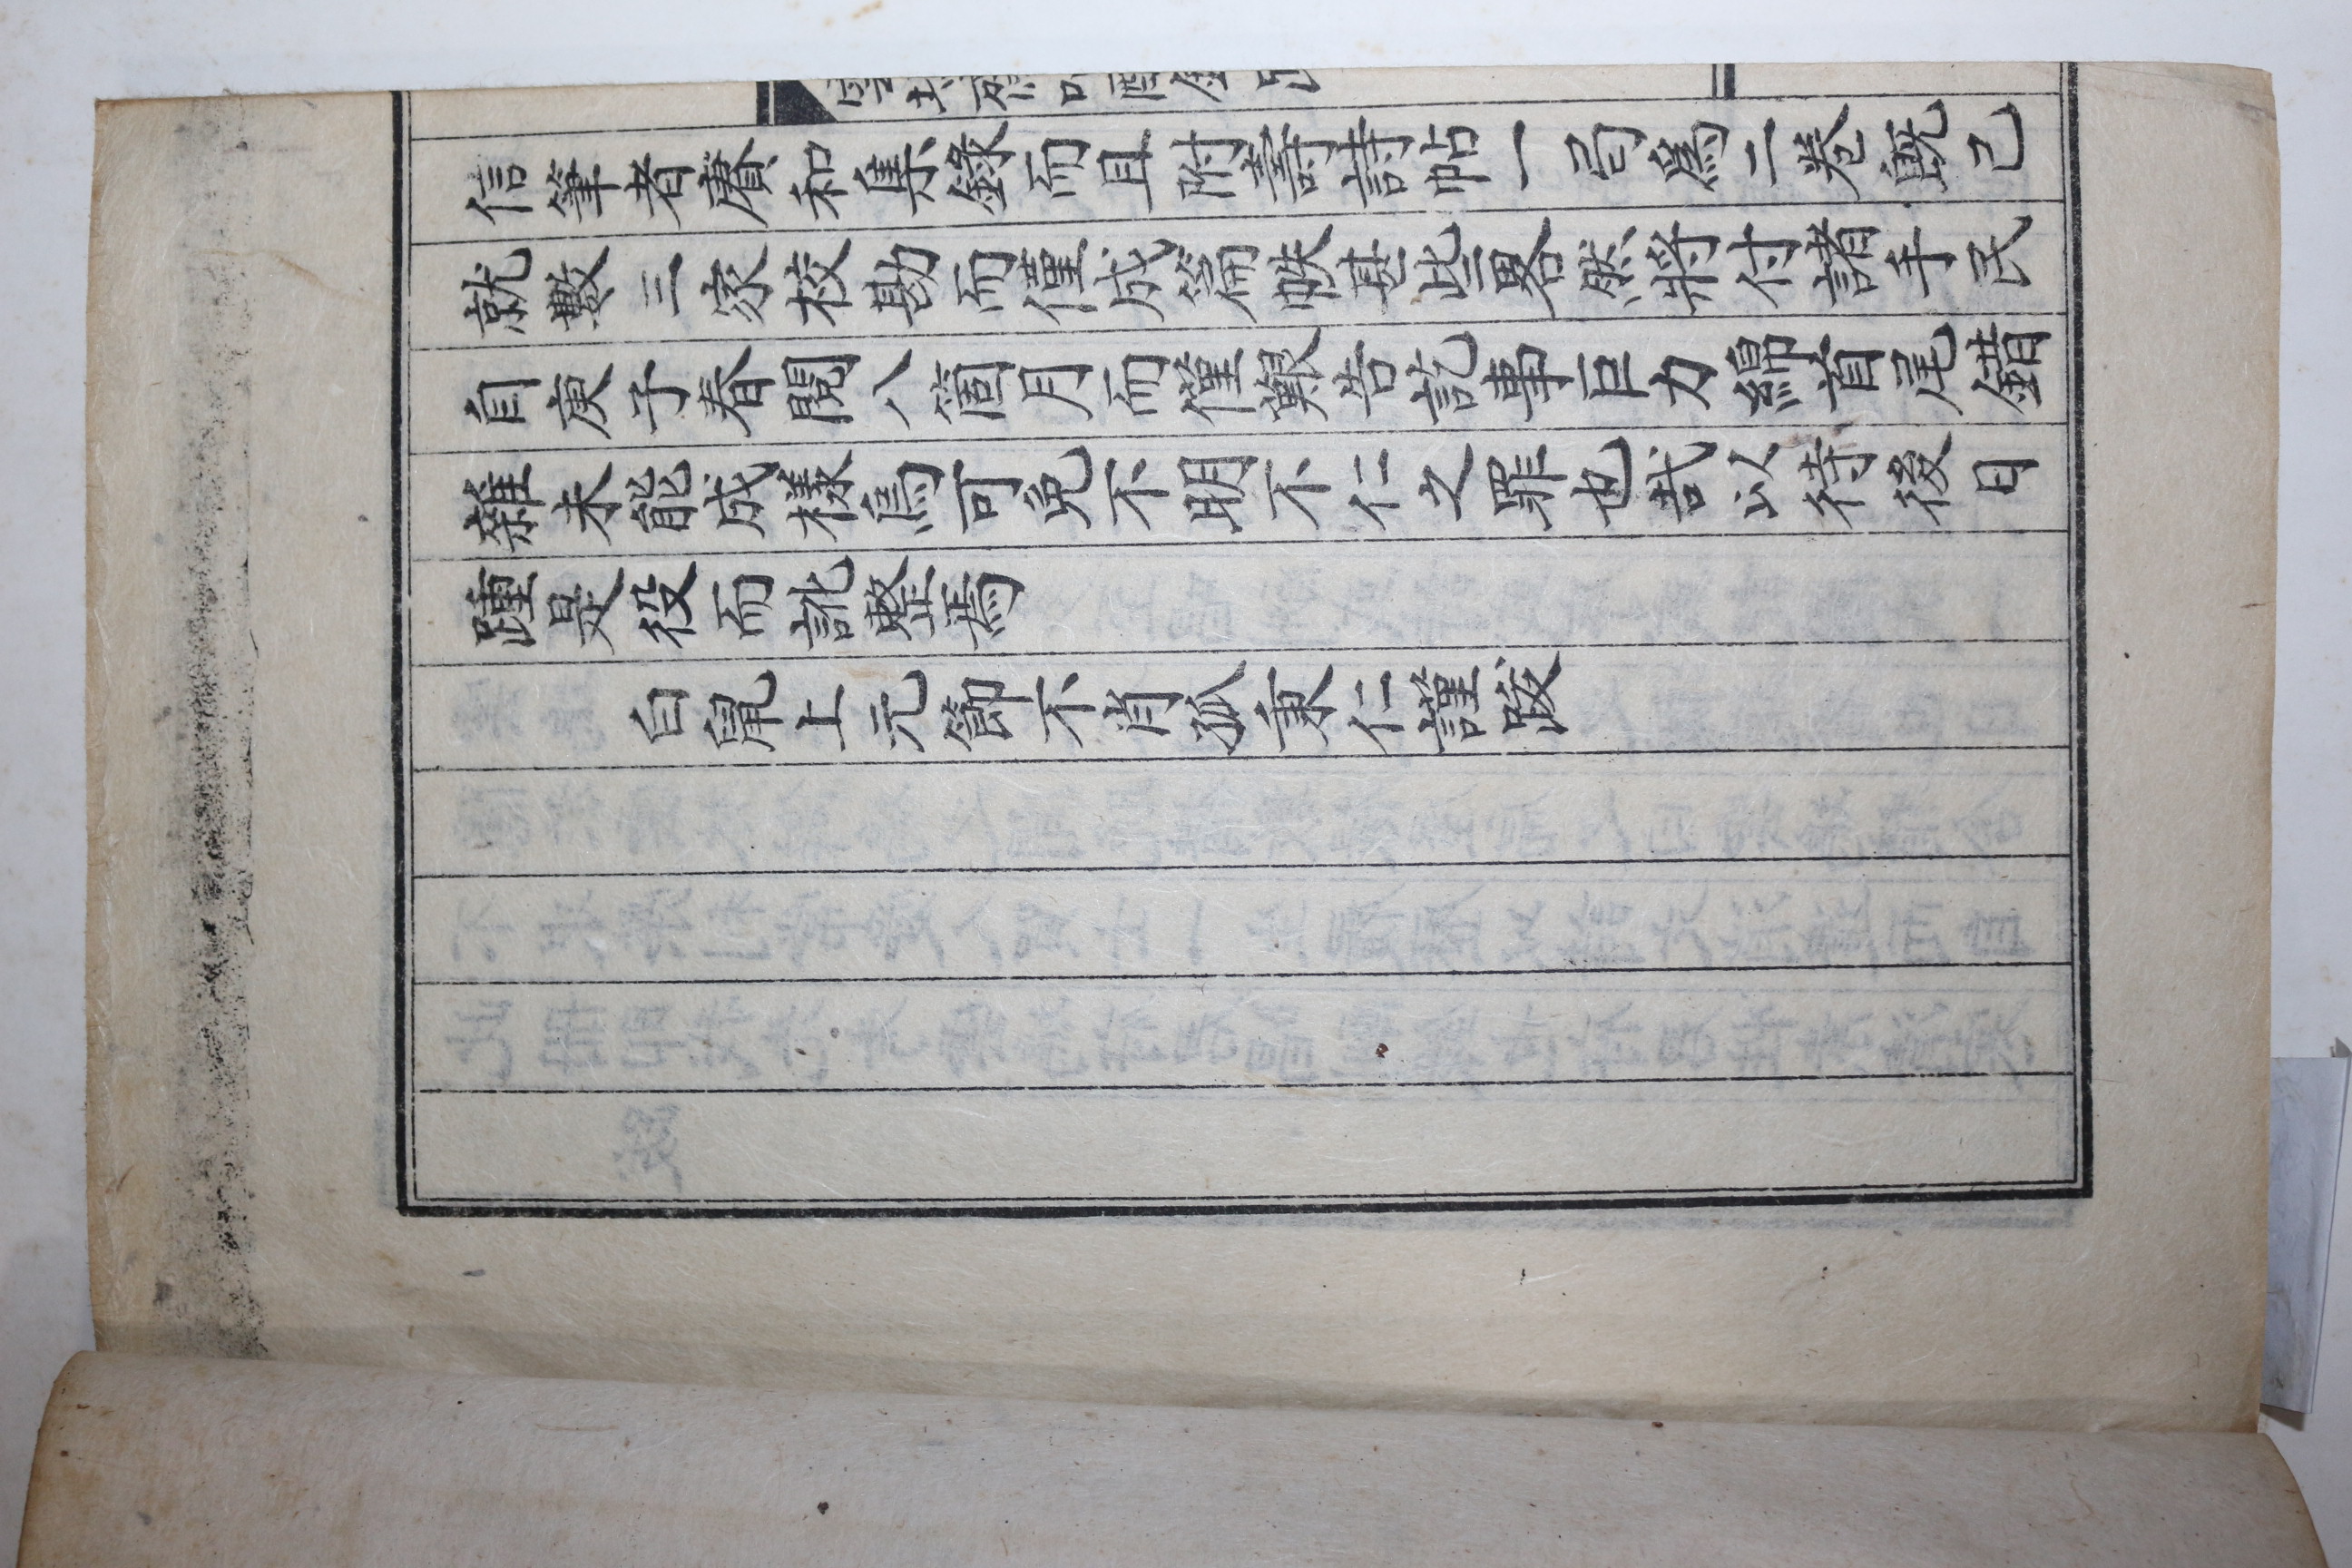 信筆者賡和集錄而且附壽詩帖一弓爲二卷旣已
就數三家校勘而僅成第帙甚此畧然將付諸手民
自庚子春閱八箇月而僅艱告訖事巨力綿首尾錯
雜未能成樣焉可免不明不仁之罪也哉以待後日
踵是役而訛整焉
白鼠上元節不肖孤秉仁謹跋